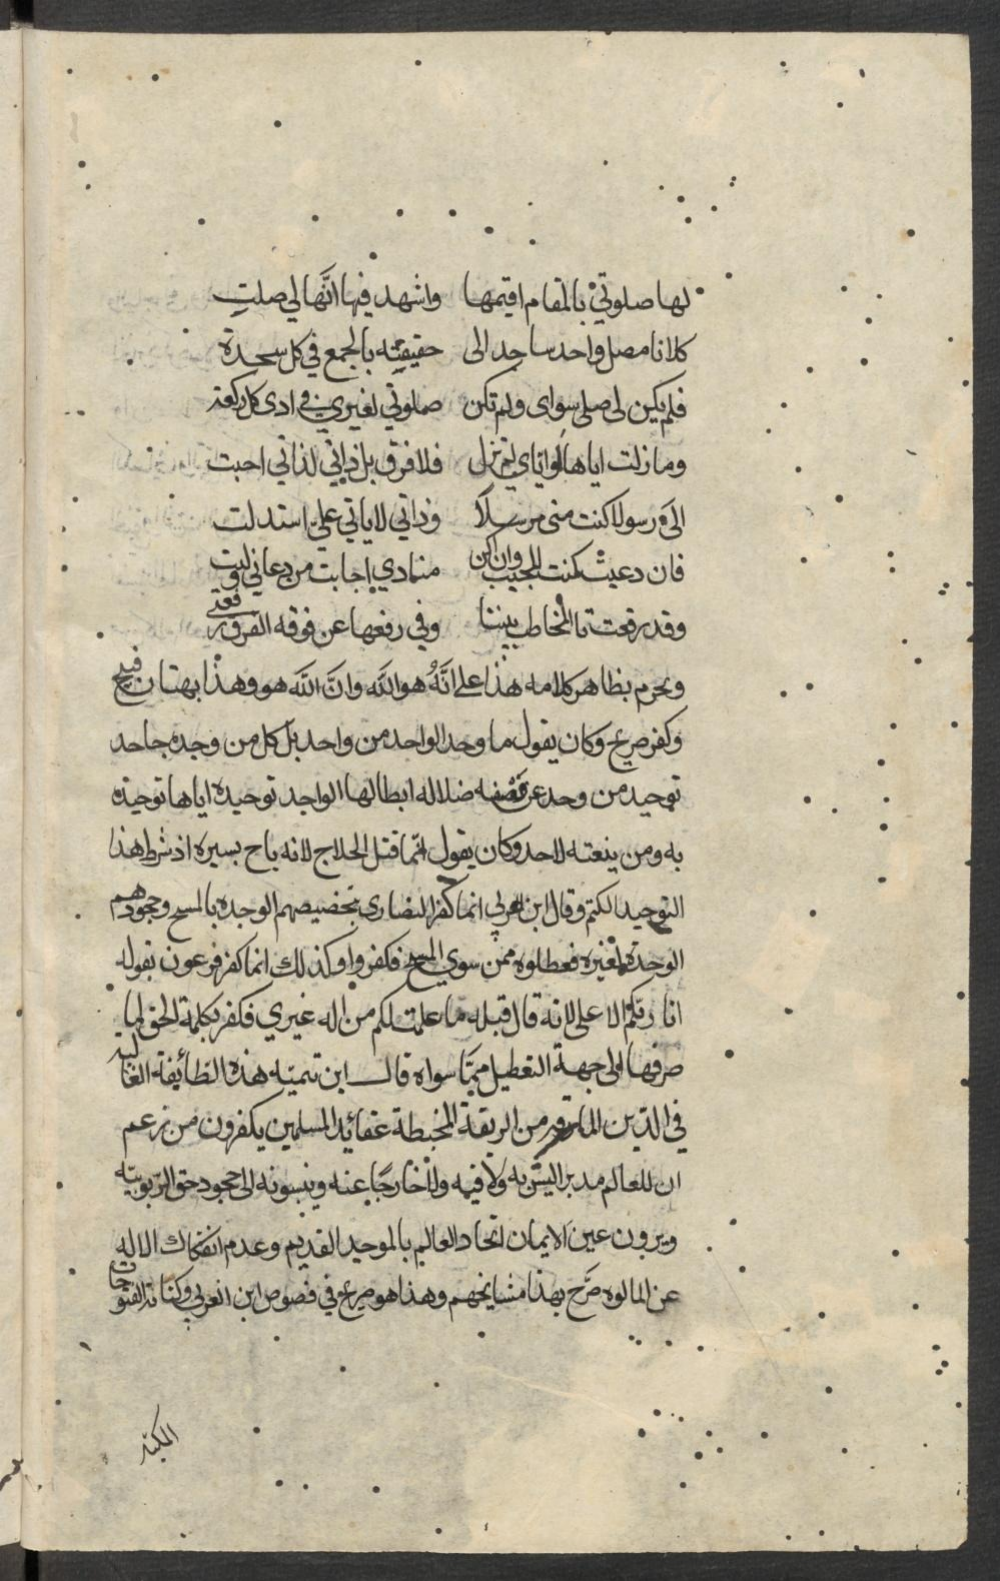 لها صلوتي بالمقام اقيمها واشهد فيها انّها لي صلت
كلانا مصل واحد ساجد الى حقيقته بالجمع في كل سجدة
فلم يكن لي صلى سواي ولم تكن صلوتي لغيري في ادى كل ركعة
وما زلت اياها واياي لم تزل فلا فرق بل ذاتي لذاتي احبت
الىّ رسولا كنت مني مرسلاً وذاتي لاياتي علي استدلت
فان دعيت كنت المجيب وان اكن منادي اجابت من دعاني ولبت
وقد رفعت تا المخاطب بيننا وفي رفعها عن فرقه الفرق رفعتي
ويحرم بظاهر كلامه هذا على انّهُ هو اللّه وانّ اللّه هو وهذا بهتان قبيح
وكفر صريح وكان يقول ما وحد الواحد من واحد بل كل من وحده جاحد
توحيد من وحد عن نفسه ضلاله ابطالها الواجد توحيده اياها توحيده
به ومن ينعته لاحد وكان يقول انما قتل الحلاج لانه باح بسيره اذ شرط هذا
التوحيد الكتم وقال ابن العربي انما كفر النصارى بتخصيصهم الوحده بالمسح وجحودهم
الوحدة لغيره فعطلوه ممن سوي المسح فكفروا وكذلك انما كفر فرعون بقوله
انا ربّكم الا على لانه قال قبله ما علمت لكم من اله غيري فكفر بكلمة الحق لما
صرفها الى جهة التعطيل ممّا سواه قال ابن تيميّه هذه الطائيفة الغالية
في الدين المارقين من الربقة المخبطة عقائد المسلمين يكفرون من زعم
ان للعالم مدبر اليس به ولا فيه ولا خارجًا عنه وينسبونه الى جحود حق الربوبيّه
ويرون عين الايمان اتحاد العالم بالموحيد القديم وعدم انفكاك الاله
عن المالوه صرّح بهذا مشايخهم وهذا هو صريح في فصوص ابن العربي وكتابه الفتوحات